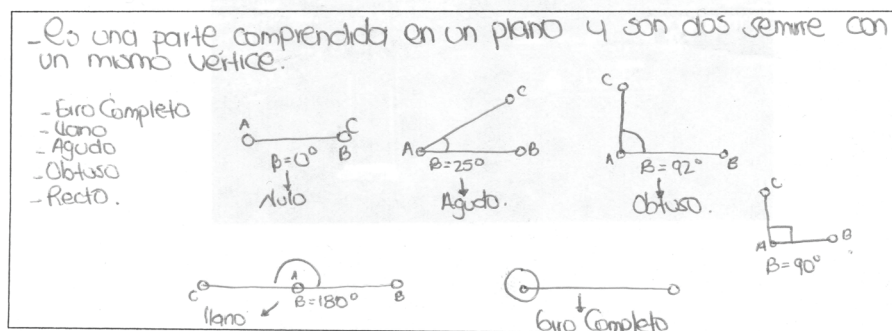 - Es una parte comprendida en un plano y son dos semirre con
un mismo vértice.
- Giro Completo
- Llano
- Agudo
- Obtuso
- Recto.
A C B
B=0°
Nulo
A C B
B=25°
Agudo.
C A B
B=92°
Obtuso.
C A B
B=90°
C A B
B=180°
Llano
Giro Completo